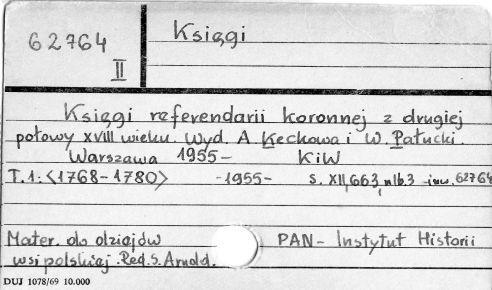 62764
II
Księgi
Księgi referendarii koronnej z drugiej
połowy XVIII wieku. Wyd. A. Keckowa i W. Pałucki.
Warszawa 1955- KiW
T.1: <1768-1780> -1955- s. XII, 663, nlb.3 -inw. 62764
Mater. do dziejów PAN- Instytut Historii
wsi polskiej. Red. S. Arnold.
DUJ 1078/69 10.000